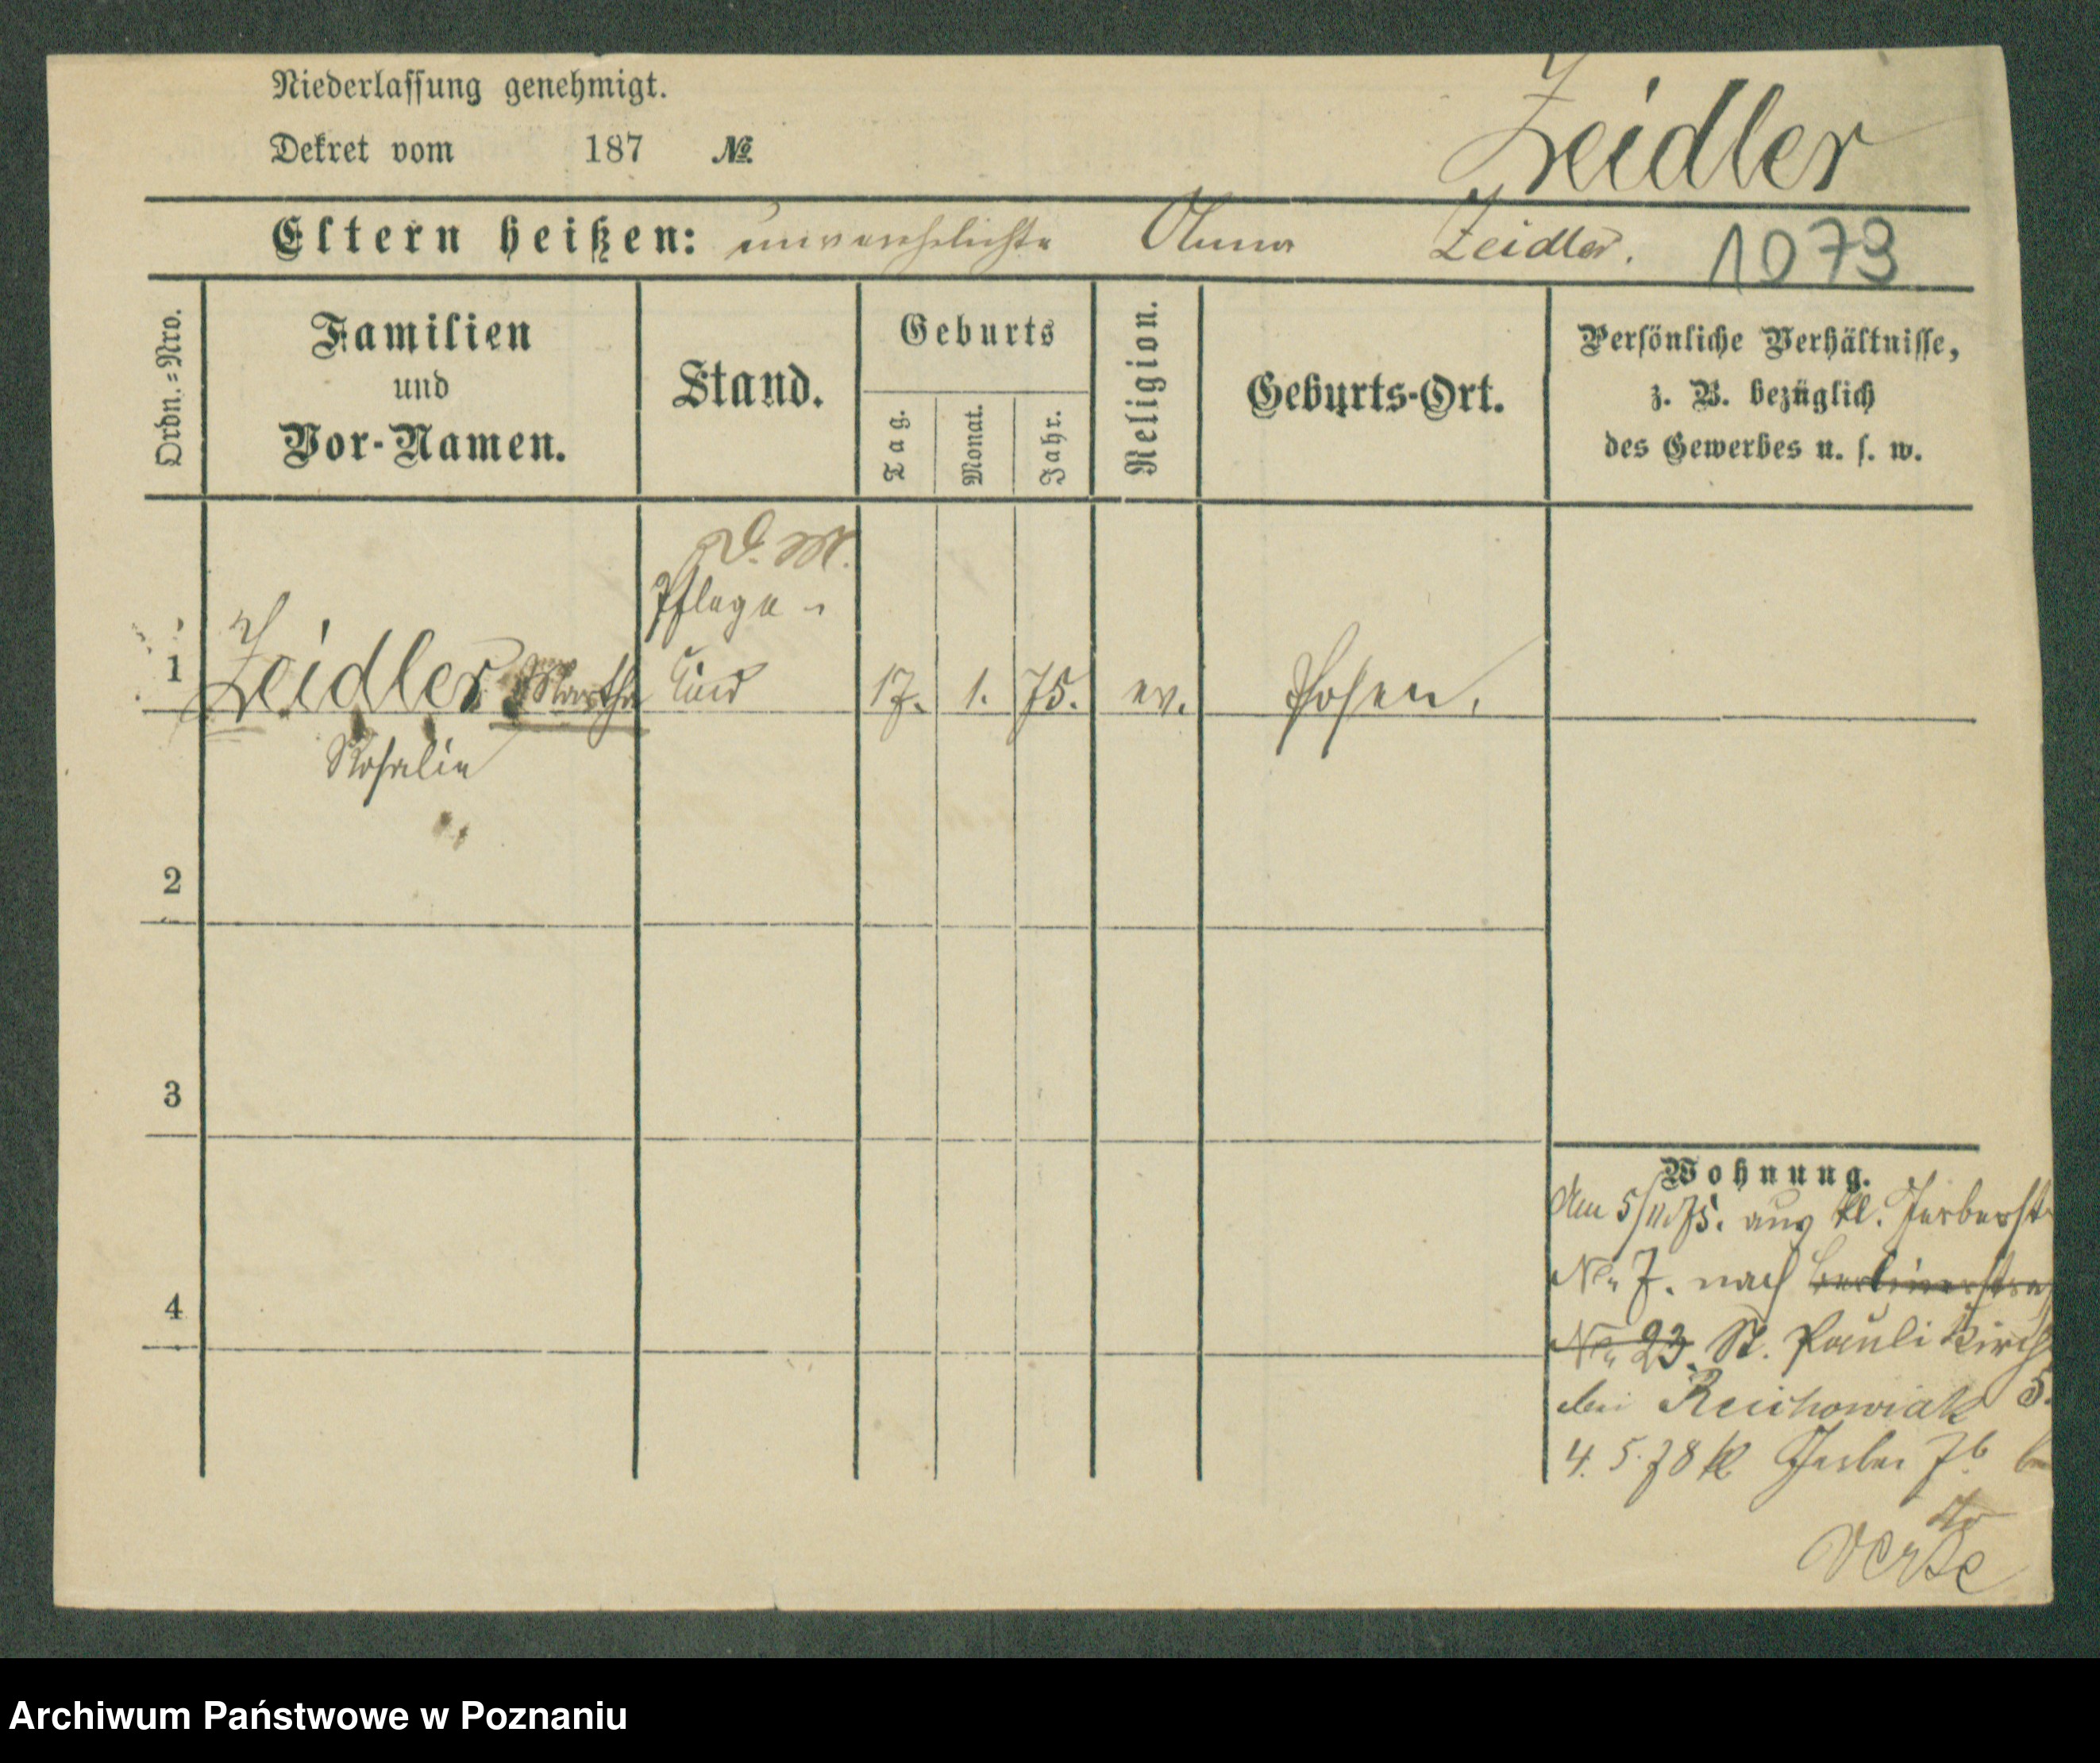 Niederlassung genehmigt.
Dekret vom 187 №
Zeidler
Eltern heißen: unverehelichte Anna Zeidler. 1073
Ordn.=Nro.
Familien und Vor-Namen.
Stand.
Geburts
Tag.
Monat.
Jahr.
Religion.
Geburts-Ort.
Persönliche Verhältnisse,
z. B. bezüglich
des Gewerbes u. s. w.
D. M.
Pflege-
1 Zeidler Martha kind 17. 1. 75. ev. Posen.
Rosalie
2
3
4
Wohnung.
Am 5/11.75. aus kl. Gerberstr
No 7. nach Berlinerstraß
No 23. St. Pauli Kirch
5.
bei Reichowiak
4. 5. 78 kl Gerber 7b
Verte
Archiwum Państwowe w Poznaniu